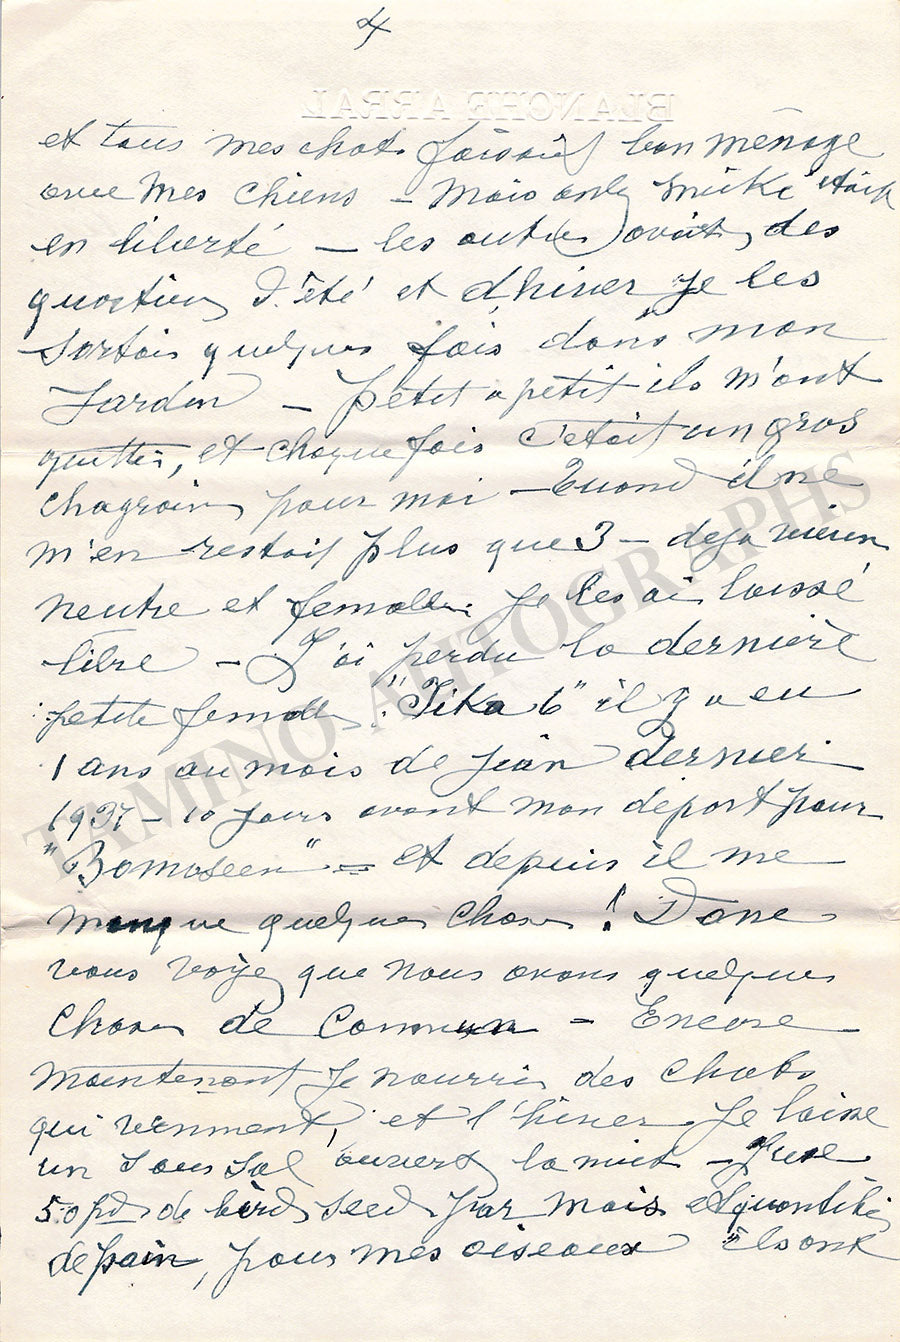 4
BLANCHE ARRAL
et tous mes chats faisait bon ménage
avec mes chiens – mais only Smike était
en liberté – les autres avait des
quartiers d'été et d'hiver je les
sortais quelques fois dans mon
Jardin – petit a petit ils m'ont
quittés, et chaque fois c'était un gros
chagrain pour moi – Quand il ne
m'en restait plus que 3 – deja vieux
neutre et femelle je les ai laissé
libre – J'ai perdu la dernière
petite femelle "Tika 6" il y a eu
1 ans au mois de juin dernier
1937 – 10 jours avant mon départ pour
"Bomoseen" – et depuis il me
manque quelques choses ! Donc
vous voyez que nous avons quelques
choses de commun – Encore
maintenant je nourris des chats
qui viennent, et l'hiver je laisse
un sous sol ouvert la nuit – J'use
50 pd de bird seed par mois et quantités
de pain, pour mes oiseaux ils ont
TAMINO AUTOGRAPHS